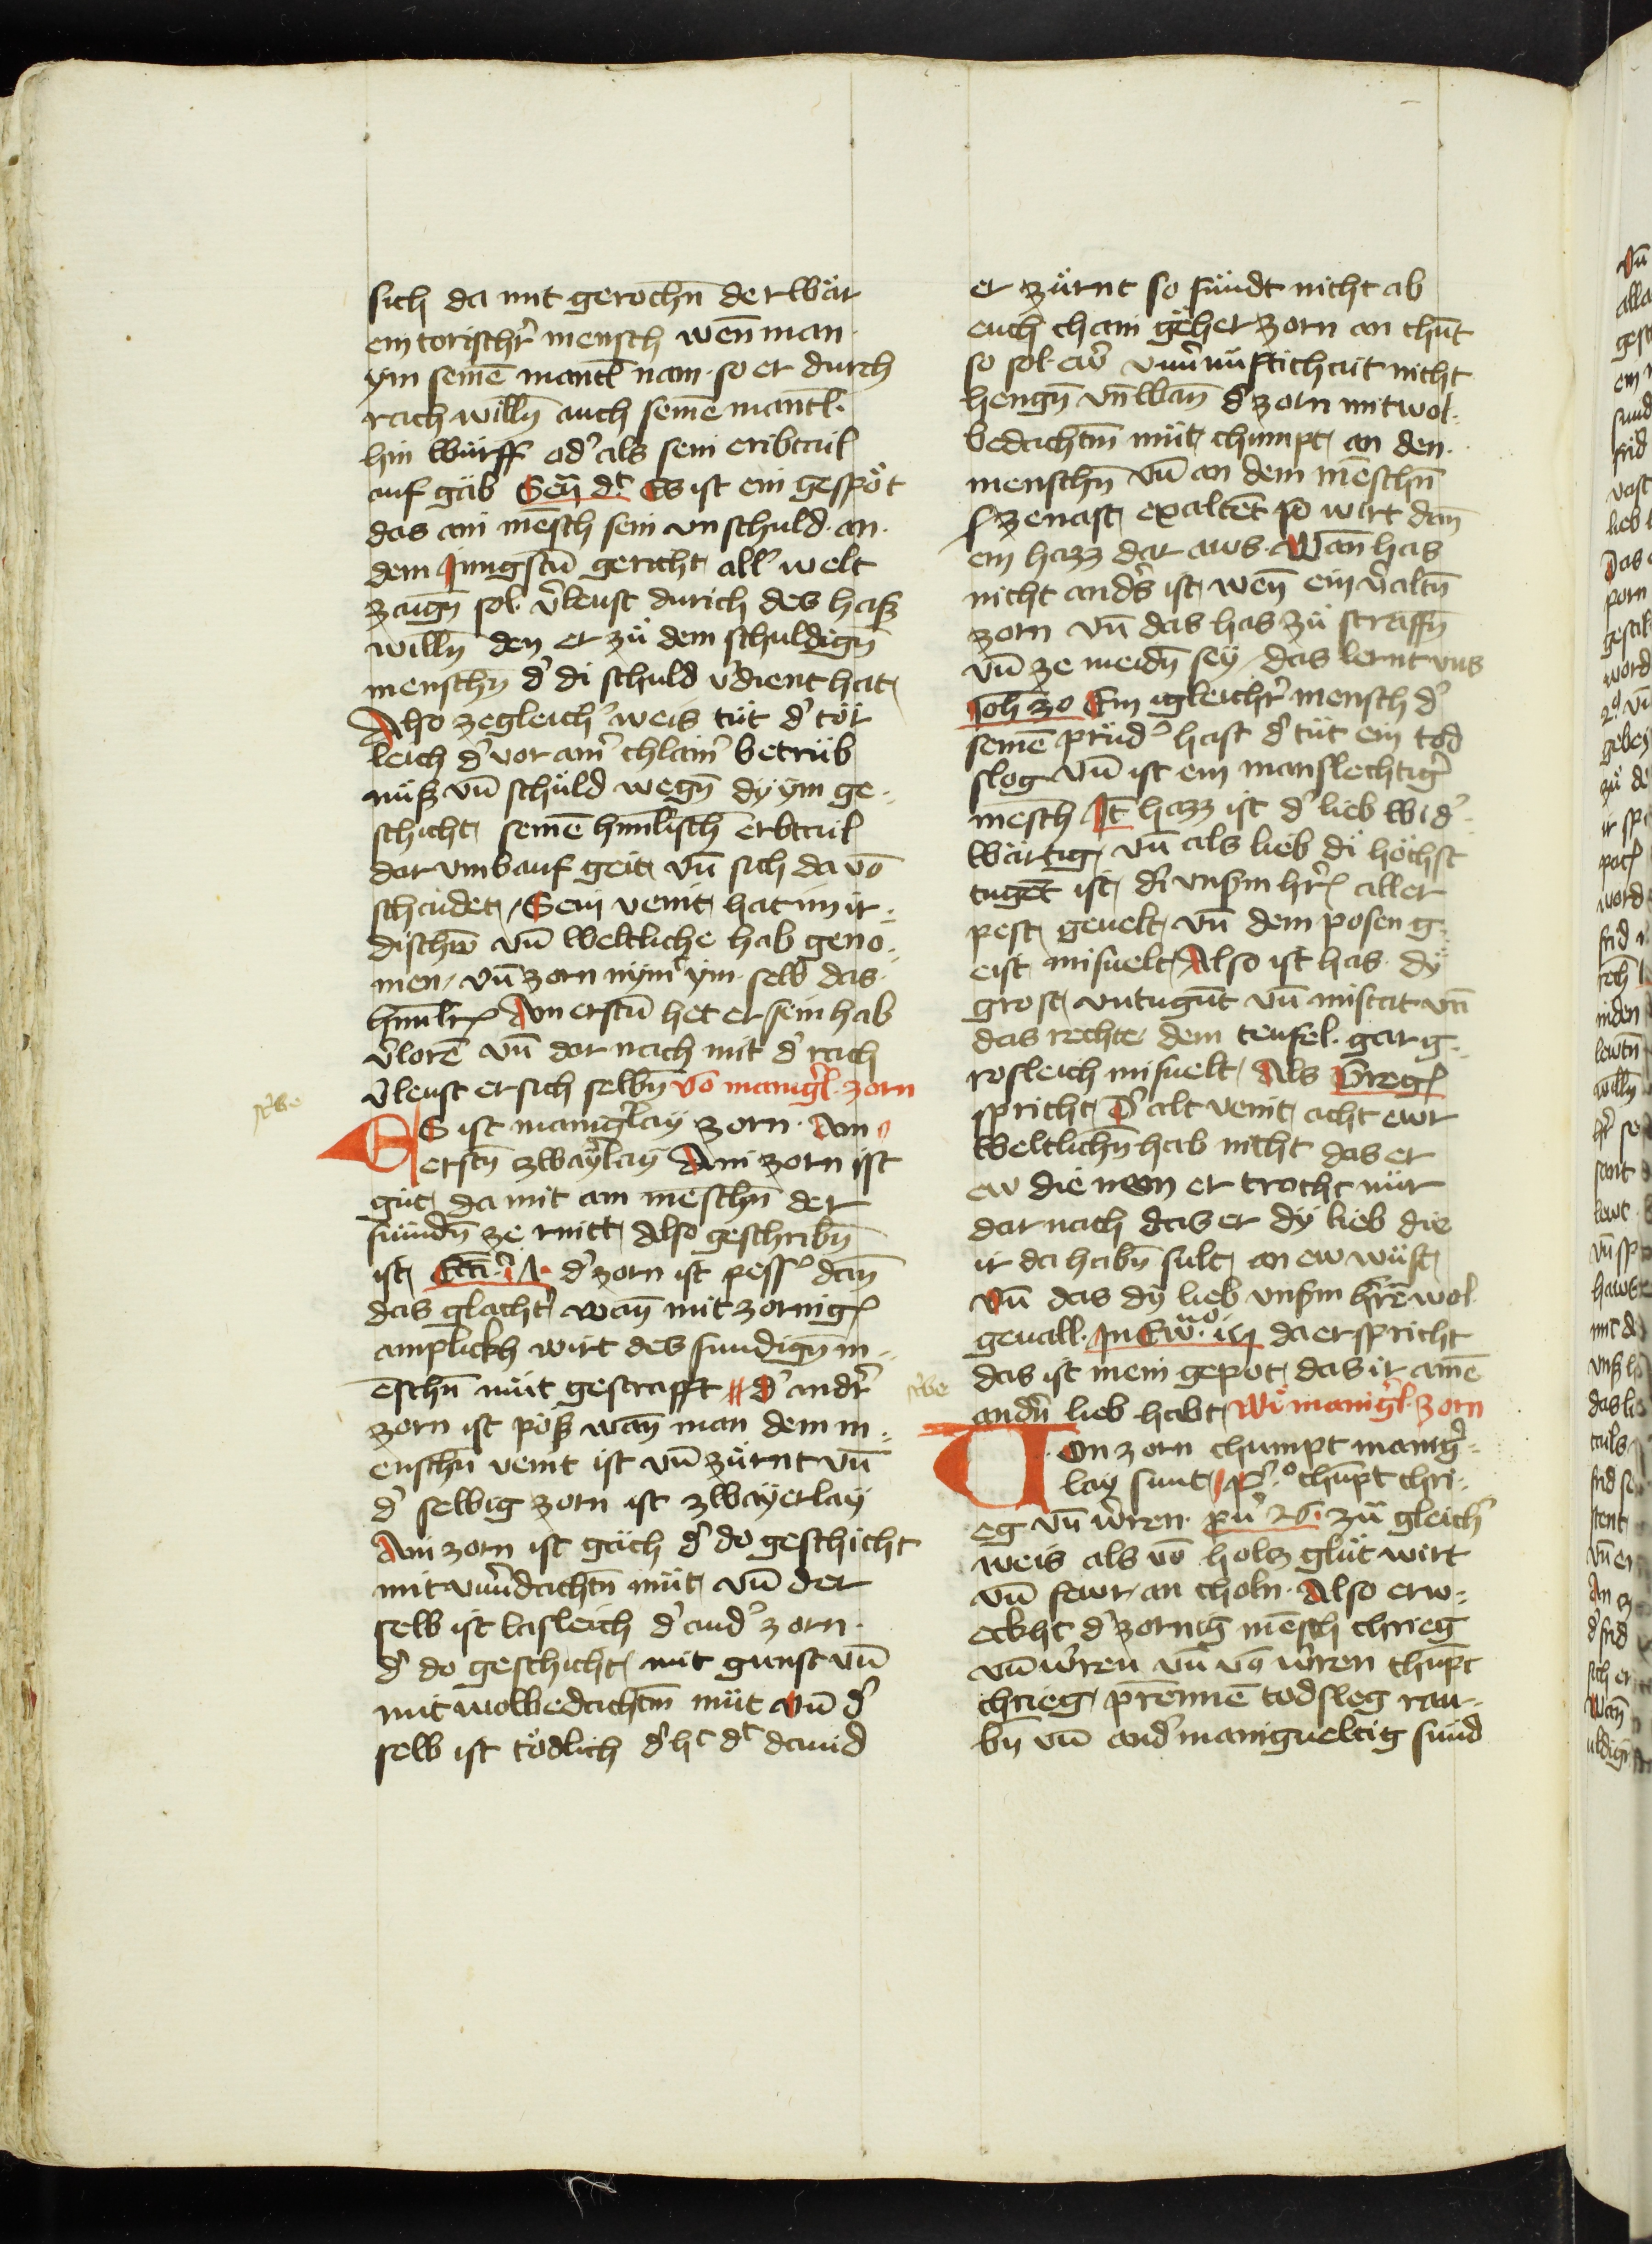 sich da mit gerochn̄ der wär
ein torischr̛ mensch wen̄ man
ym seinē mantl nam · so er durch
rach willn̄ auch seinē mantl ·
hin würff od̛ als sein eribtail
auf gäb Sen̄ dt Es ist ein gespöt
das ain mēsch sein vnschuld · an ·
dem Jungstn̄ gericht all̛ welt
zaign̄ sol · v̛leust durich des hasz
willn̄ den er zü dem schuldign̄
menschn̄ d̛ di schuld v̛dient hat
Also zegleich̛ weis tüt d̛ tör
leich d̛ vor ain̛ chlain̛ betrüb
nüsz vn̄ schüld wegn̄ dy ym ge-
schicht seinē him̄lischn̄ erbtail
dar vmb auf geit vn̄ sich da vō
schaidet / Sein veint hat im ir-
dischew vn̄ weltliche hab geno-
men / vn̄ zorn nÿmt ym · selb das ·
him̄lr̄ Am erstn̄ het er sein hab
v̛lorē vn̄ dar nach mit d̛ rach
v̛leust er sich selbn̄ vō manig̛l · zorn
ES ist manig̛lay zorn · Am
erstn̄ zway̛lay Ain zorn ist
güt da mit ain meschn̄ der
sündn̄ ze rnitt Also geschribn̄
ist d̛ zorn ist pess̛ dan̄
das glacht̛ wan̄ mit zornig̛
anplickh wirt des sundign̄ m-
ēschn̄ müt gestrafft d̛ andr̛
zorn ist pösz wan̄ man dem m-
enschn̄ veint ist vn̄ zürnt vn̄
d̛ selbig zorn ist zwayerlay
Ain zorn ist gäch d̛ do geschicht
mit vnv̛dachtn̄ müt vn̄ der
selb ist lasleich d̛ and̛ zorn ·
d̛ do geschicht mit gunst vn̄
mit wolbedachtm̄ müt vn̄ d̛
selb ist tödlich d̛ ht dt dauid
er zürnt so sündt nicht ab
euch chain gëher zorn an chūt
so sol · ew̛ vnv̛nüftichait nicht
hengn̄ vn̄ wan̄ d̛ zorn mit wol ·
bedachtm̄ müt chumpt an den ·
menschn̄ vn̄ an dem mēschn̄
zenast exaltēt so wirt dan̄
ein hazz dar aws · Wan̄ has
nicht and̛s ist wen̄ ein v̛altn̄
zorn vn̄ das has zü straffn̄
vn̄ ze meidn̄ sey / das lernt vns
Joh 30 Ein igleichr̛ mensch d̛
seinē prüd̛ hast d̛ tüt ein tod
slog vn̄ ist ein manslechtig̛
mēsch It̄ hazz ist d̛ lieb wid̛-
wärtig vn̄ als lieb di höchst
tugēt ist di vnsm̄ hr̄ aller
pest geuelt vn̄ dem posen g-
eist misuelt Also ist has · dy
grost vntugūt vn̄ mistat vn̄
das rechte dem teufel · gar g-
rosleich misuelt / Als Greg̛
spricht / D̛ alt veint acht ewr
weltlichn̄ hab nicht das er
ew die nem er trocht nür
dar nach das er dy lieb die
ir da habn̄ sult an ew wüst
vn̄ das dy lieb vnsm̄ hrē wol
geuall · da er spricht
das ist mein gepot das ir ainē
andn̄ lieb habt Wi manig̛l · zorn
Von zorn chumpt manig̛-
lay sunt / P̛o chūpt chri-
eg vn̄ w̛ren · pư 26 · zü gleich̛
weis als vō holz glüt wirt
vn̄ fewr an choln · Also erw-
eckht d̛ zornig mēsch chrieg
vn̄ w̛ren vn̄ vō w̛ren chūpt
chrieg / prennē todsleg rau-
bn̄ vn̄ and̛ manigueltig sünd